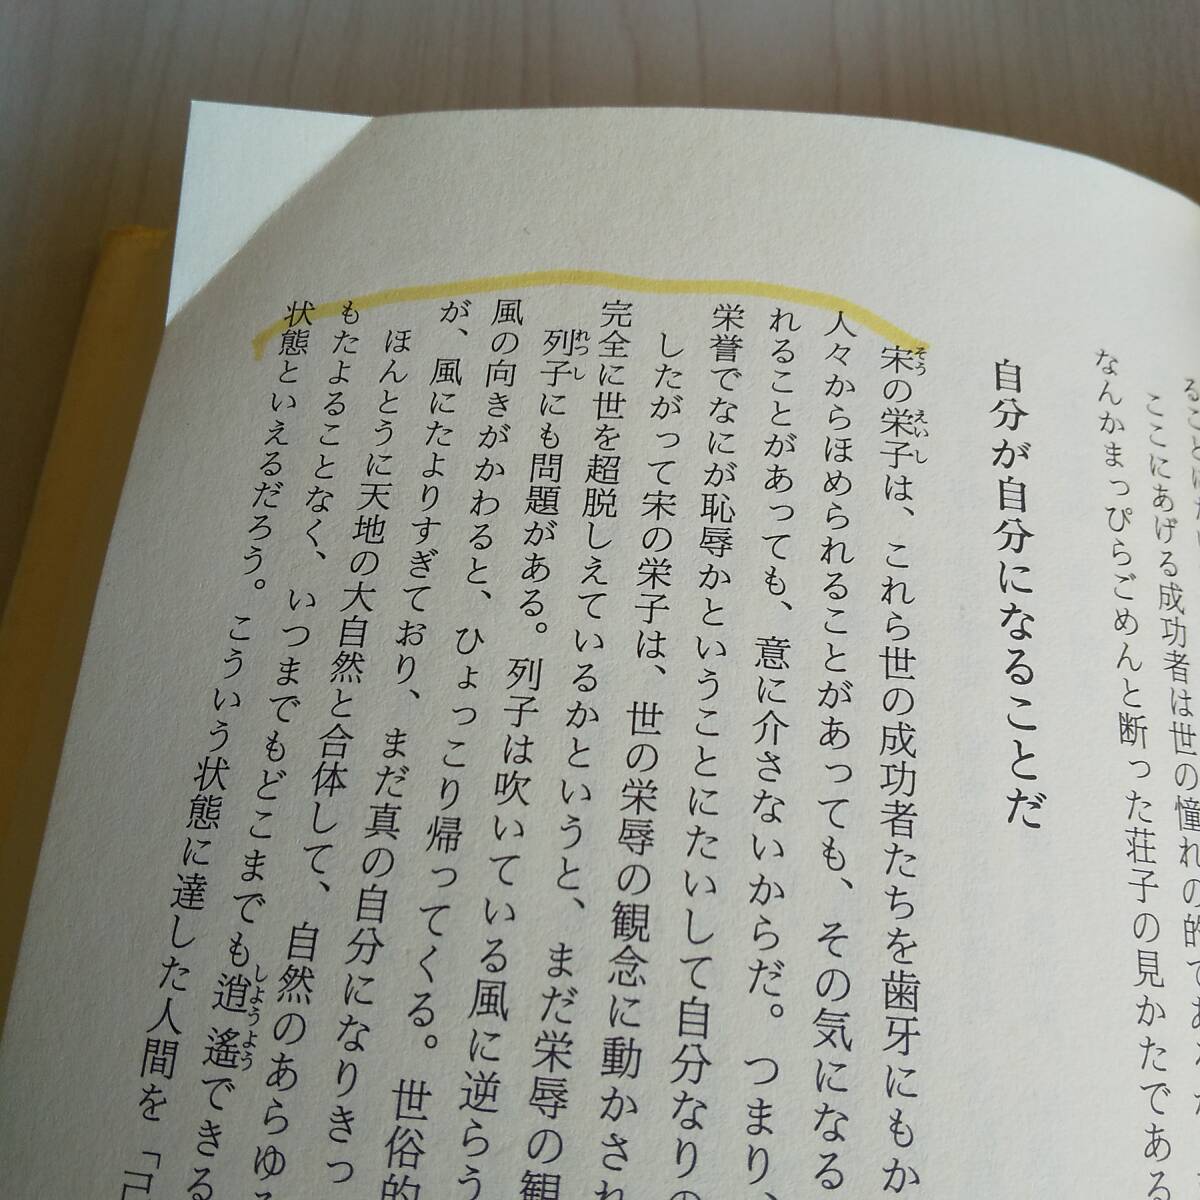 ここにあげる成功者は世の憧れの的であ
なんかまっぴらごめんと断った荘子の見かたである
自分が自分になることだ
宋の栄子は、これら世の成功者たちを歯牙にもか
人々からほめられることがあっても、その気になる
れることがあっても、意に介さないからだ。つまり、
栄誉でなにが恥辱かということにたいして自分なりの
したがって宋の栄子は、世の栄辱の観念に動かされ
完全に世を超脱しえているかというと、まだ栄辱の観
列子にも問題がある。列子は吹いている風に逆らう
風の向きがかわると、ひょっこり帰ってくる。世俗的
が、風にたよりすぎており、まだ真の自分になりきっ
ほんとうに天地の大自然と合体して、自然のあらゆる
もたよることなく、いつまでもどこまでも逍遙できる
状態といえるだろう。こういう状態に達した人間を「己